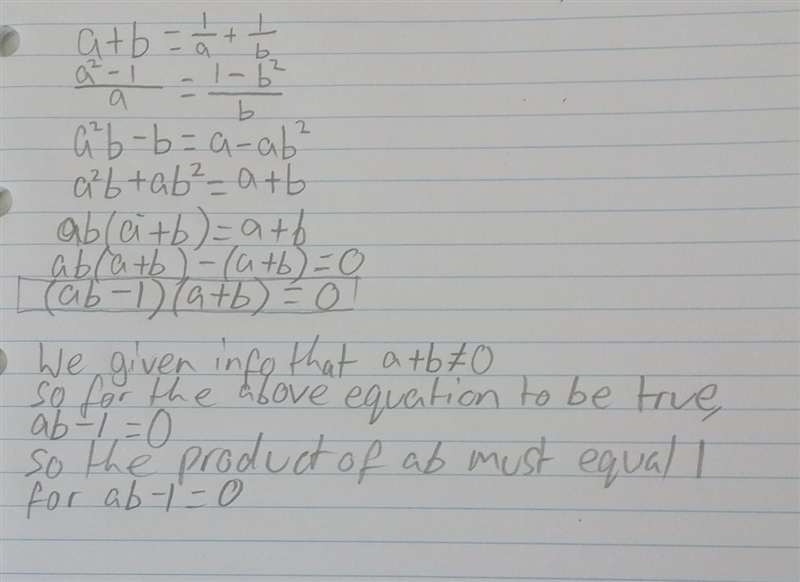 a+b = 1/a + 1/b
(a²-1)/a = (1-b²)/b
a²b-b=a-ab²
a²b+ab²=a+b
ab(a+b)=a+b
ab(a+b)-(a+b)=0
(ab-1)(a+b)=0
We given info that a+b≠0
so for the above equation to be true,
ab-1=0
so the product of ab must equal 1
for ab-1=0